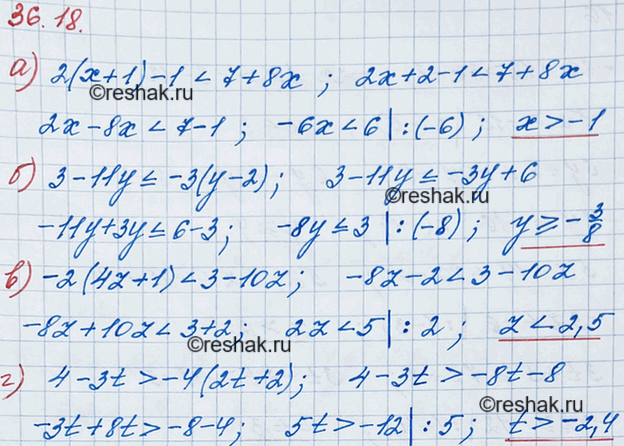 36.18.
а) 2(x+1)-1<7+8x ; 2x+2-1<7+8x
©reshak.ru
2x-8x<7-1 ; -6x<6 | :(-6) ; x>-1
б) 3-11y≤-3(y-2); 3-11y≤-3y+6
©reshak.ru
-11y+3y≤6-3; -8y≤3 | :(-8) ; y≥-3/8
в) -2(4z+1)<3-10z; -8z-2<3-10z
-8z+10z<3+2; 2z<5 | :2 ; z<2,5
©reshak.ru
г) 4-3t>-4(2t+2); 4-3t>-8t-8
-3t+8t>-8-4; 5t>-12 | :5 ; t>-2,4